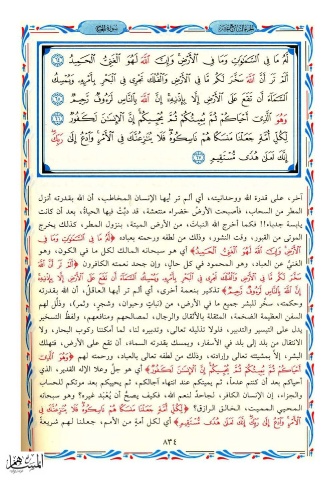 سورة الحج
لَهُ مَا فِي السَّمَاوَاتِ وَمَا فِي الْأَرْضِ وَإِنَّ اللَّهَ لَهُوَ الْغَنِيُّ الْحَمِيدُ ٦٤
أَلَمْ تَرَ أَنَّ اللَّهَ سَخَّرَ لَكُم مَّا فِي الْأَرْضِ وَالْفُلْكَ تَجْرِي فِي الْبَحْرِ بِأَمْرِهِ وَيُمْسِكُ
السَّمَاءَ أَن تَقَعَ عَلَى الْأَرْضِ إِلَّا بِإِذْنِهِ إِنَّ اللَّهَ بِالنَّاسِ لَرَءُوفٌ رَّحِيمٌ ٦٥
وَهُوَ الَّذِي أَحْيَاكُمْ ثُمَّ يُمِيتُكُمْ ثُمَّ يُحْيِيكُمْ إِنَّ الْإِنسَانَ لَكَفُورٌ ٦٦
لِّكُلِّ أُمَّةٍ جَعَلْنَا مَنسَكًا هُمْ نَاسِكُوهُ فَلَا يُنَازِعُنَّكَ فِي الْأَمْرِ وَادْعُ إِلَى رَبِّكَ
إِنَّكَ لَعَلَى هُدًى مُّسْتَقِيمٍ ٦٧
آخر، على قدرة الله ووحدانيته، أي ألم تر أيها الإنسان المخاطب، أن الله بقدرته أنزل
المطر من السحاب، فأصبحت الأرض خضراء منتعشة، قد دبَّت فيها الحياة، بعد أن كانت
يابسة جدباء!! فكما أخرج الله النبات، من الأرض الميتة، بنزول المطر، كذلك يخرج
الموتى من القبور، وقت النشور، وذلك من لطفه ورحمته بعباده ﴿لَهُ مَا فِي السَّمَاوَاتِ وَمَا فِي
الْأَرْضِ وَإِنَّ اللَّهَ لَهُوَ الْغَنِيُّ الْحَمِيدُ﴾ أي هو سبحانه المالك لكل ما في الكون، وهو
الغنيُّ عن العباد، وهو المحمود في كل حال، وإن جحد نعمته الكافرون ﴿أَلَمْ تَرَ أَنَّ اللَّهَ
سَخَّرَ لَكُم مَّا فِي الْأَرْضِ وَالْفُلْكَ تَجْرِي فِي الْبَحْرِ بِأَمْرِهِ وَيُمْسِكُ السَّمَاءَ أَن تَقَعَ عَلَى الْأَرْضِ إِلَّا بِإِذْنِهِ إِنَّ اللَّهَ
بِالنَّاسِ لَرَءُوفٌ رَّحِيمٌ﴾ تذكير بنعمة أخرى، أي ألم تر أيها العاقل، أن الله بقدرته
وحكمته، سخَّر للبشر جميع ما في الأرض، من (نباتٍ وحيوان، وشجر، وثمر) وذلَّل لهم
السفن العظيمة الضخمة، المثقلة بالأثقال والرجال، لمصالحهم ومنافعهم، ولفظُ التسخير
يدل على التيسير والتدبير، فلولا تذليله تعالى، وتدبيره لنا، لما أمكننا ركوب البحار، ولا
الانتقال من بلد إلى بلد في الأسفار، ويمسك بقدرته السماء، أن تقع على الأرض، فتهلك
البشر، إلا بمشيئته تعالى وإرادته، وذلك من لطفه تعالى بالعباد، ورحمته لهم ﴿وَهُوَ الَّذِي
أَحْيَاكُمْ ثُمَّ يُمِيتُكُمْ ثُمَّ يُحْيِيكُمْ إِنَّ الْإِنسَانَ لَكَفُورٌ﴾ أي هو جلَّ وعلا الإله القدير، الذي
أحياكم بعد أن كنتم عدماً، ثم يميتكم عند انتهاء آجالكم، ثم يحييكم بعد موتكم للحساب
والجزاء، إن الإنسان الكافر، لجاحد لنعم الله، فكيف يصحُّ أن يُعبد غيره؟ وهو سبحانه
المحيي المميت، الخالق الرازق؟ ﴿لِّكُلِّ أُمَّةٍ جَعَلْنَا مَنسَكًا هُمْ نَاسِكُوهُ فَلَا يُنَازِعُنَّكَ فِي
الْأَمْرِ وَادْعُ إِلَى رَبِّكَ إِنَّكَ لَعَلَى هُدًى مُّسْتَقِيمٍ﴾ أي لكل أمةٍ من الأمم، جعلنا لهم شريعةً
٨٣٤